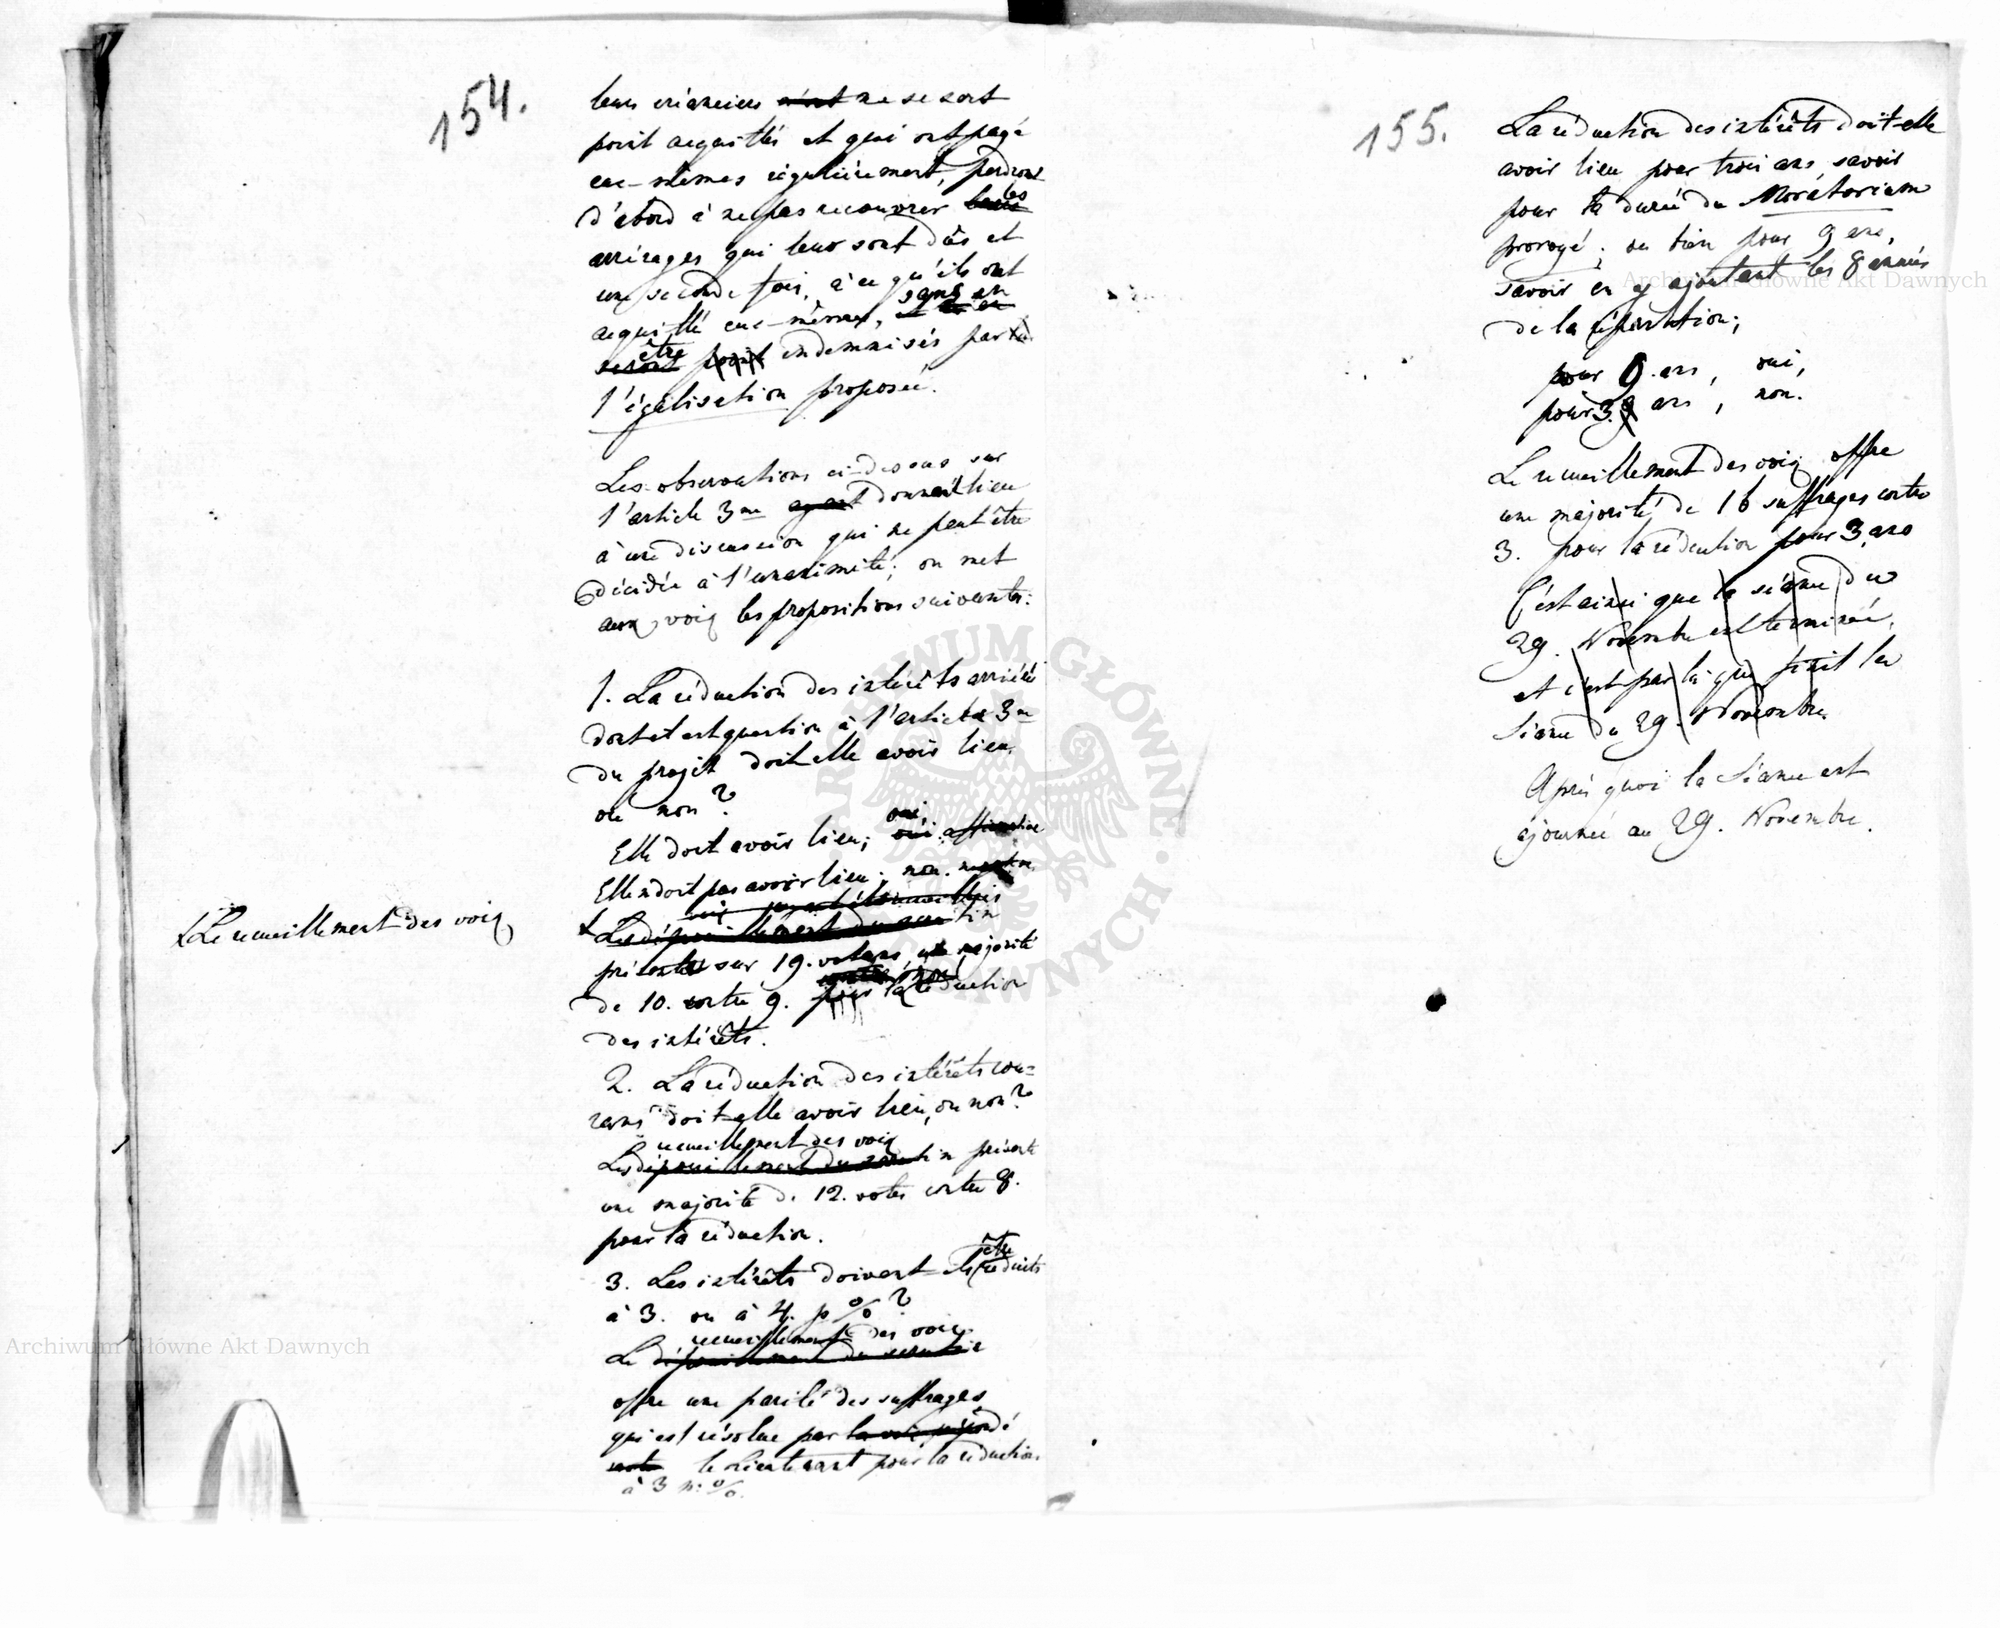 154.
leurs créanciers n'ont ne se sont
point acquittés et qui ont payé
eux-mêmes régulièrement, perdront
d'abord à ne pas recouvrer leurs les
arrérages qui leur sont dûs et
une seconde fois, à ce qu'ils ont
acquitté eux-mêmes, sans en
être point indemnisés par
l'égalisation proposée.
Les observations ci-dessus sur
l'article 3me ayant donnent lieu
à une discussion qui ne peut être
décidée à l'unanimité; on met
aux voix les propositions suivantes:
1. La réduction des intérêts arriérés
dont est question à l'article 3me
du projet doit elle avoir lieu
ou non?
Elle doit avoir lieu; oui, oui: affirmative
Elle ne doit pas avoir lieu; non.
Le recueillement des voix
Le dépouillement du scrutin
présente sur 19. votans, une majorité
de 10. contre 9. pour la réduction
des intérêts.
2. La réduction des intérêts cou-
rans doit-elle avoir lieu, ou non?
recueillement des voix
Le dépouillement du scrutin présente
une majorité de 12. votes contre 8.
pour la réduction.
3. Les intérêts doivent-ils être réduits
à 3. ou à 4. p %?
recueillement des voix
Le dépouillement du scrutin
offre une parité des suffrages
qui est résolue par la voix
le Lieutenant pour la réduction
à 3 p. %.
155.
La réduction des intérêts doit-elle
avoir lieu pour trois ans, savoir
pour la durée du Moratorium
prorogé; ou bien pour 9 ans,
savoir en y ajoutant les 8 années
de la répartition;
pour 9. ans, oui,
pour 3. 9 ans, non.
Le recueillement des voix offre
une majorité de 16 suffrages contre
3. pour la réduction pour 3 ans
C'est ainsi que la séance du
29. Novembre est terminée,
et c'est par là que finit la
séance du 29. Novembre.
Après quoi la Séance est
ajournée au 29. Novembre.
ARCHIWUM GŁÓWNE AKT DAWNYCH
Archiwum Główne Akt Dawnych
Archiwum Główne Akt Dawnych